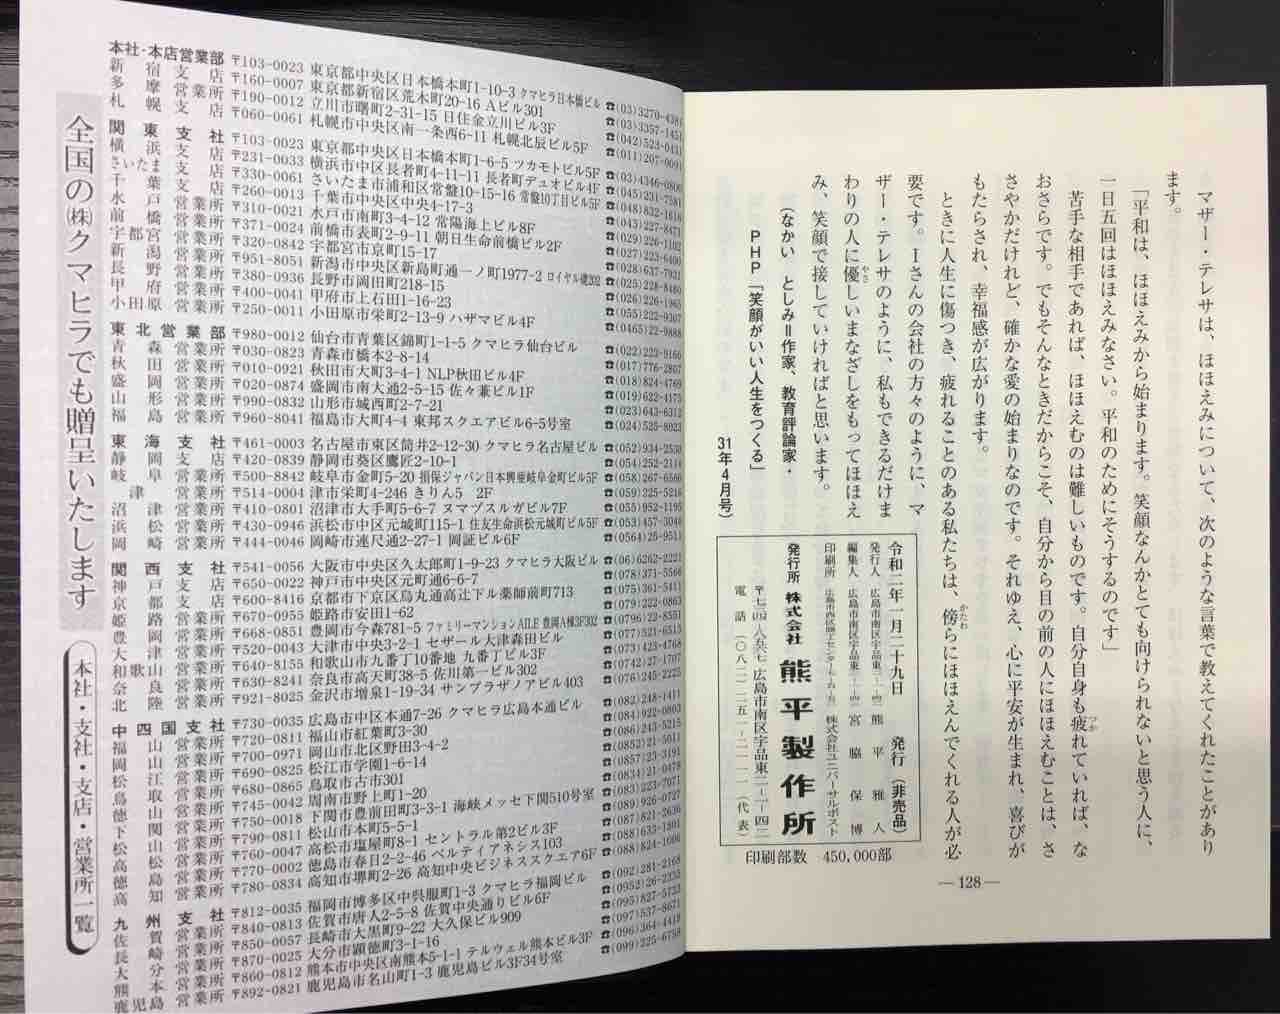 マザー・テレサは、ほほえみについて、次のような言葉で教えてくれたことがあり
ます。
「平和は、ほほえみから始まります。笑顔なんかとても向けられないと思う人に、
一日五回はほほえみなさい。平和のためにそうするのです」
苦手な相手であれば、ほほえむのは難しいものです。自分自身も疲れていれば、な
おさらです。でもそんなときだからこそ、自分から目の前の人にほほえむことは、さ
さやかだけれど、確かな愛の始まりなのです。それゆえ、心に平安が生まれ、喜びが
もたらされ、幸福感が広がります。
ときに人生に傷つき、疲れることのある私たちは、傍らにほほえんでくれる人が必
要です。Ｉさんの会社の方々のように、マ
ザー・テレサのように、私もできるだけま
わりの人に優しいまなざしをもってほほえ
み、笑顔で接していければと思います。
（なかい　としみ＝作家、教育評論家・
ＰＨＰ「笑顔がいい人生をつくる」
31年４月号）
令和二年一月二十九日　発行（非売品）
発行人　広島市南区宇品東二-一-四二　熊平雅人
編集人　広島市南区宇品東二-一-四二　宮脇保博
印刷所　広島市西区商工センター七-五-五二　株式会社ユニバーサルポスト
発行所　株式会社　熊平製作所
〒七三四-八五六七　広島市南区宇品東二-一-四二
電話（〇八二）二五一-二一一一（代表）
印刷部数　450,000部
―128―
全国の㈱クマヒラでも贈呈いたします
本社・支社・支店・営業所一覧
本社・本店営業部 〒103-0023 東京都中央区日本橋本町1-10-3 クマヒラ日本橋ビル ☎(03)3270-4381
新宿支店 〒160-0007 東京都新宿区荒木町20-16 Aビル301 ☎(03)3357-1451
多摩営業所 〒190-0012 立川市曙町2-31-15 日住金立川ビル3F ☎(042)523-0431
札幌支店 〒060-0061 札幌市中央区南一条西6-11 札幌北辰ビル5F ☎(011)207-0091
関東支社 〒103-0023 東京都中央区日本橋本町1-6-5 ツカモトビル5F ☎(03)4346-0806
横浜支店 〒231-0033 横浜市中区長者町4-11-11 長者町デュオビル4F ☎(045)231-7581
さいたま支店 〒330-0061 さいたま市浦和区常盤10-15-16 常盤10丁目ビル5F ☎(048)832-1616
千葉支店 〒260-0013 千葉市中央区中央4-17-3 ☎(043)227-8471
水戸営業所 〒310-0021 水戸市南町3-4-12 常陽海上ビル8F ☎(029)226-1102
前橋営業所 〒371-0024 前橋市表町2-9-11 朝日生命前橋ビル2F ☎(027)223-6400
宇都宮営業所 〒320-0842 宇都宮市京町15-17 ☎(028)637-7931
新潟営業所 〒951-8051 新潟市中央区新島町通一ノ町1977-2 ロイヤル礎202 ☎(025)228-8480
長野営業所 〒380-0936 長野市岡田町218-15 ☎(026)226-1965
甲府営業所 〒400-0041 甲府市上石田1-16-23 ☎(055)222-9307
小田原営業所 〒250-0011 小田原市栄町2-13-9 ハザマビル4F ☎(0465)22-9888
東北営業部 〒980-0012 仙台市青葉区錦町1-1-5 クマヒラ仙台ビル ☎(022)223-9166
青森営業所 〒030-0823 青森市橋本2-8-14 ☎(017)776-2807
秋田営業所 〒010-0921 秋田市大町3-4-1 NLP秋田ビル4F ☎(018)824-4769
盛岡営業所 〒020-0874 盛岡市南大通2-5-15 佐々兼ビル1F ☎(019)622-4175
山形営業所 〒990-0832 山形市城西町2-7-21 ☎(023)643-6312
福島営業所 〒960-8041 福島市大町4-4 東邦スクエアビル6-5号室 ☎(024)525-8023
東海支社 〒461-0003 名古屋市東区筒井2-12-30 クマヒラ名古屋ビル ☎(052)934-2530
静岡支店 〒420-0839 静岡市葵区鷹匠2-10-1 ☎(054)252-2114
岐阜営業所 〒500-8842 岐阜市金町5-20 損保ジャパン日本興亜岐阜金町ビル5F ☎(058)267-6560
津営業所 〒514-0004 津市栄町4-246 きりん5 2F ☎(059)225-5216
沼津営業所 〒410-0801 沼津市大手町5-6-7 ヌマヅスルガビル7F ☎(055)952-1195
浜松営業所 〒430-0946 浜松市中区元城町115-1 住友生命浜松元城町ビル5F ☎(053)457-3048
岡崎営業所 〒444-0046 岡崎市連尺通2-27-1 岡証ビル6F ☎(0564)25-9511
関西支社 〒541-0056 大阪市中央区久太郎町1-9-23 クマヒラ大阪ビル ☎(06)6262-2221
神戸支店 〒650-0022 神戸市中央区元町通6-6-7 ☎(078)371-5566
京都支店 〒600-8416 京都市下京区烏丸通高辻下ル薬師前町713 ☎(075)361-5411
姫路営業所 〒670-0955 姫路市安田1-62 ☎(079)222-0863
豊岡営業所 〒668-0851 豊岡市今森781-5 ファミリーマンションAILE豊岡A棟3F302 ☎(0796)22-8551
大津営業所 〒520-0043 大津市中央3-2-1 セザール大津森田ビル ☎(077)521-6513
和歌山営業所 〒640-8155 和歌山市九番丁10番地 九番丁ビル3F ☎(073)423-4678
奈良営業所 〒630-8241 奈良市高天町38-5 佐川第一ビル302 ☎(0742)27-1707
北陸営業所 〒921-8025 金沢市増泉1-19-34 サンプラザノア403 ☎(076)245-2225
中四国支社 〒730-0035 広島市中区本通7-26 クマヒラ広島本通ビル ☎(082)248-1411
福山営業所 〒720-0811 福山市紅葉町3-30 ☎(084)922-0803
岡山営業所 〒700-0971 岡山市北区野田3-4-2 ☎(086)243-5215
松江営業所 〒690-0825 松江市学園1-6-14 ☎(0852)21-5011
鳥取営業所 〒680-0865 鳥取市古市301 ☎(0857)23-3191
徳山営業所 〒745-0042 周南市野上町1-20 ☎(0834)21-0478
下関営業所 〒750-0018 下関市豊前田町3-3-1 海峡メッセ下関510号室 ☎(083)223-7071
松山営業所 〒790-0811 松山市本町5-5-1 ☎(089)926-0727
高松営業所 〒760-0047 高松市塩屋町8-1 セントラル第2ビル3F ☎(087)821-2636
徳島営業所 〒770-0002 徳島市春日2-2-46 ベルティアネシス103 ☎(088)633-1801
高知営業所 〒780-0834 高知市堺町2-26 高知中央ビジネススクエア6F ☎(088)824-1606
九州支社 〒812-0035 福岡市博多区中呉服町1-3 クマヒラ福岡ビル ☎(092)281-2168
佐賀営業所 〒840-0813 佐賀市唐人2-5-8 佐賀中央通りビル6F ☎(0952)26-2335
長崎営業所 〒850-0057 長崎市大黒町9-22 大久保ビル909 ☎(095)827-5735
大分営業所 〒870-0025 大分市顕徳町3-1-16 ☎(097)537-8671
熊本営業所 〒860-0012 熊本市中央区南熊本5-1-1 テルウェル熊本ビル3F ☎(096)364-4418
鹿児島営業所 〒892-0821 鹿児島市名山町1-3 鹿児島ビル3F34号室 ☎(099)225-6758